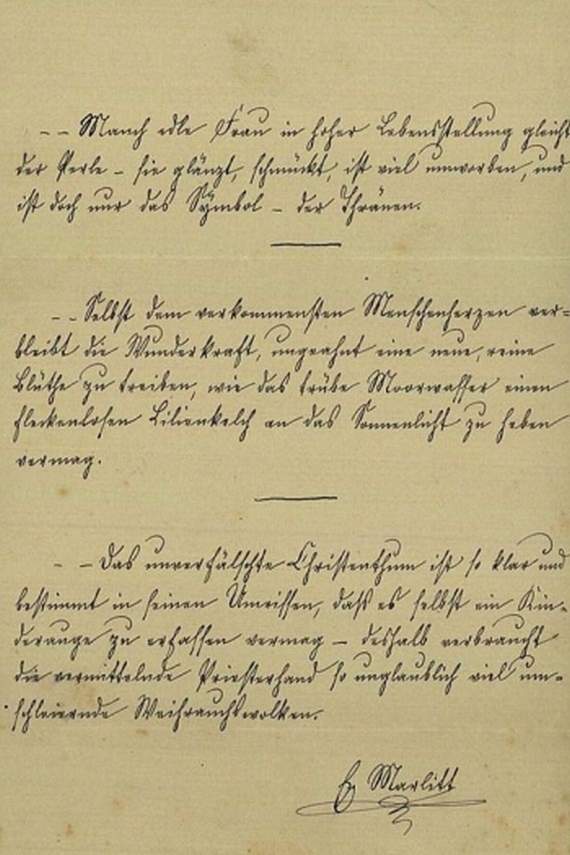 - - Manch edle Frau in hoher Lebensstellung gleicht
der Perle - sie glänzt, schmückt, ist viel umworben, und
ist doch nur das Symbol - der Thränen.
- - Selbst dem verkommensten Menschenherzen ver-
bleibt die Wunderkraft, ungeahnt eine neue, reine
Blüthe zu treiben, wie das trübe Moorwasser einen
fleckenlosen Lilienkelch an das Sonnenlicht zu heben
vermag.
- - Das unverfälschte Christenthum ist so klar und
bestimmt in seinen Umrissen, daß es selbst ein Kin-
derauge zu erfassen vermag - deshalb verbraucht
die vermittelnde Priesterhand so unglaublich viel um-
schleiernde Weihrauchswolken.
E. Marlitt